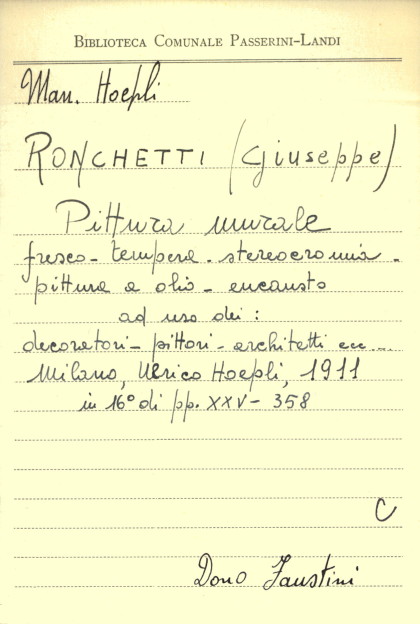 BIBLIOTECA COMUNALE PASSERINI-LANDI
Man. Hoepli
RONCHETTI (Giuseppe)
Pittura murale
fresco - tempera - stereocromia -
pittura a olio - encausto
ad uso dei :
decoratori - pittori - architetti ecc....
Milano, Ulrico Hoepli, 1911
in 16° di pp. XXV - 358
C
Dono Faustini